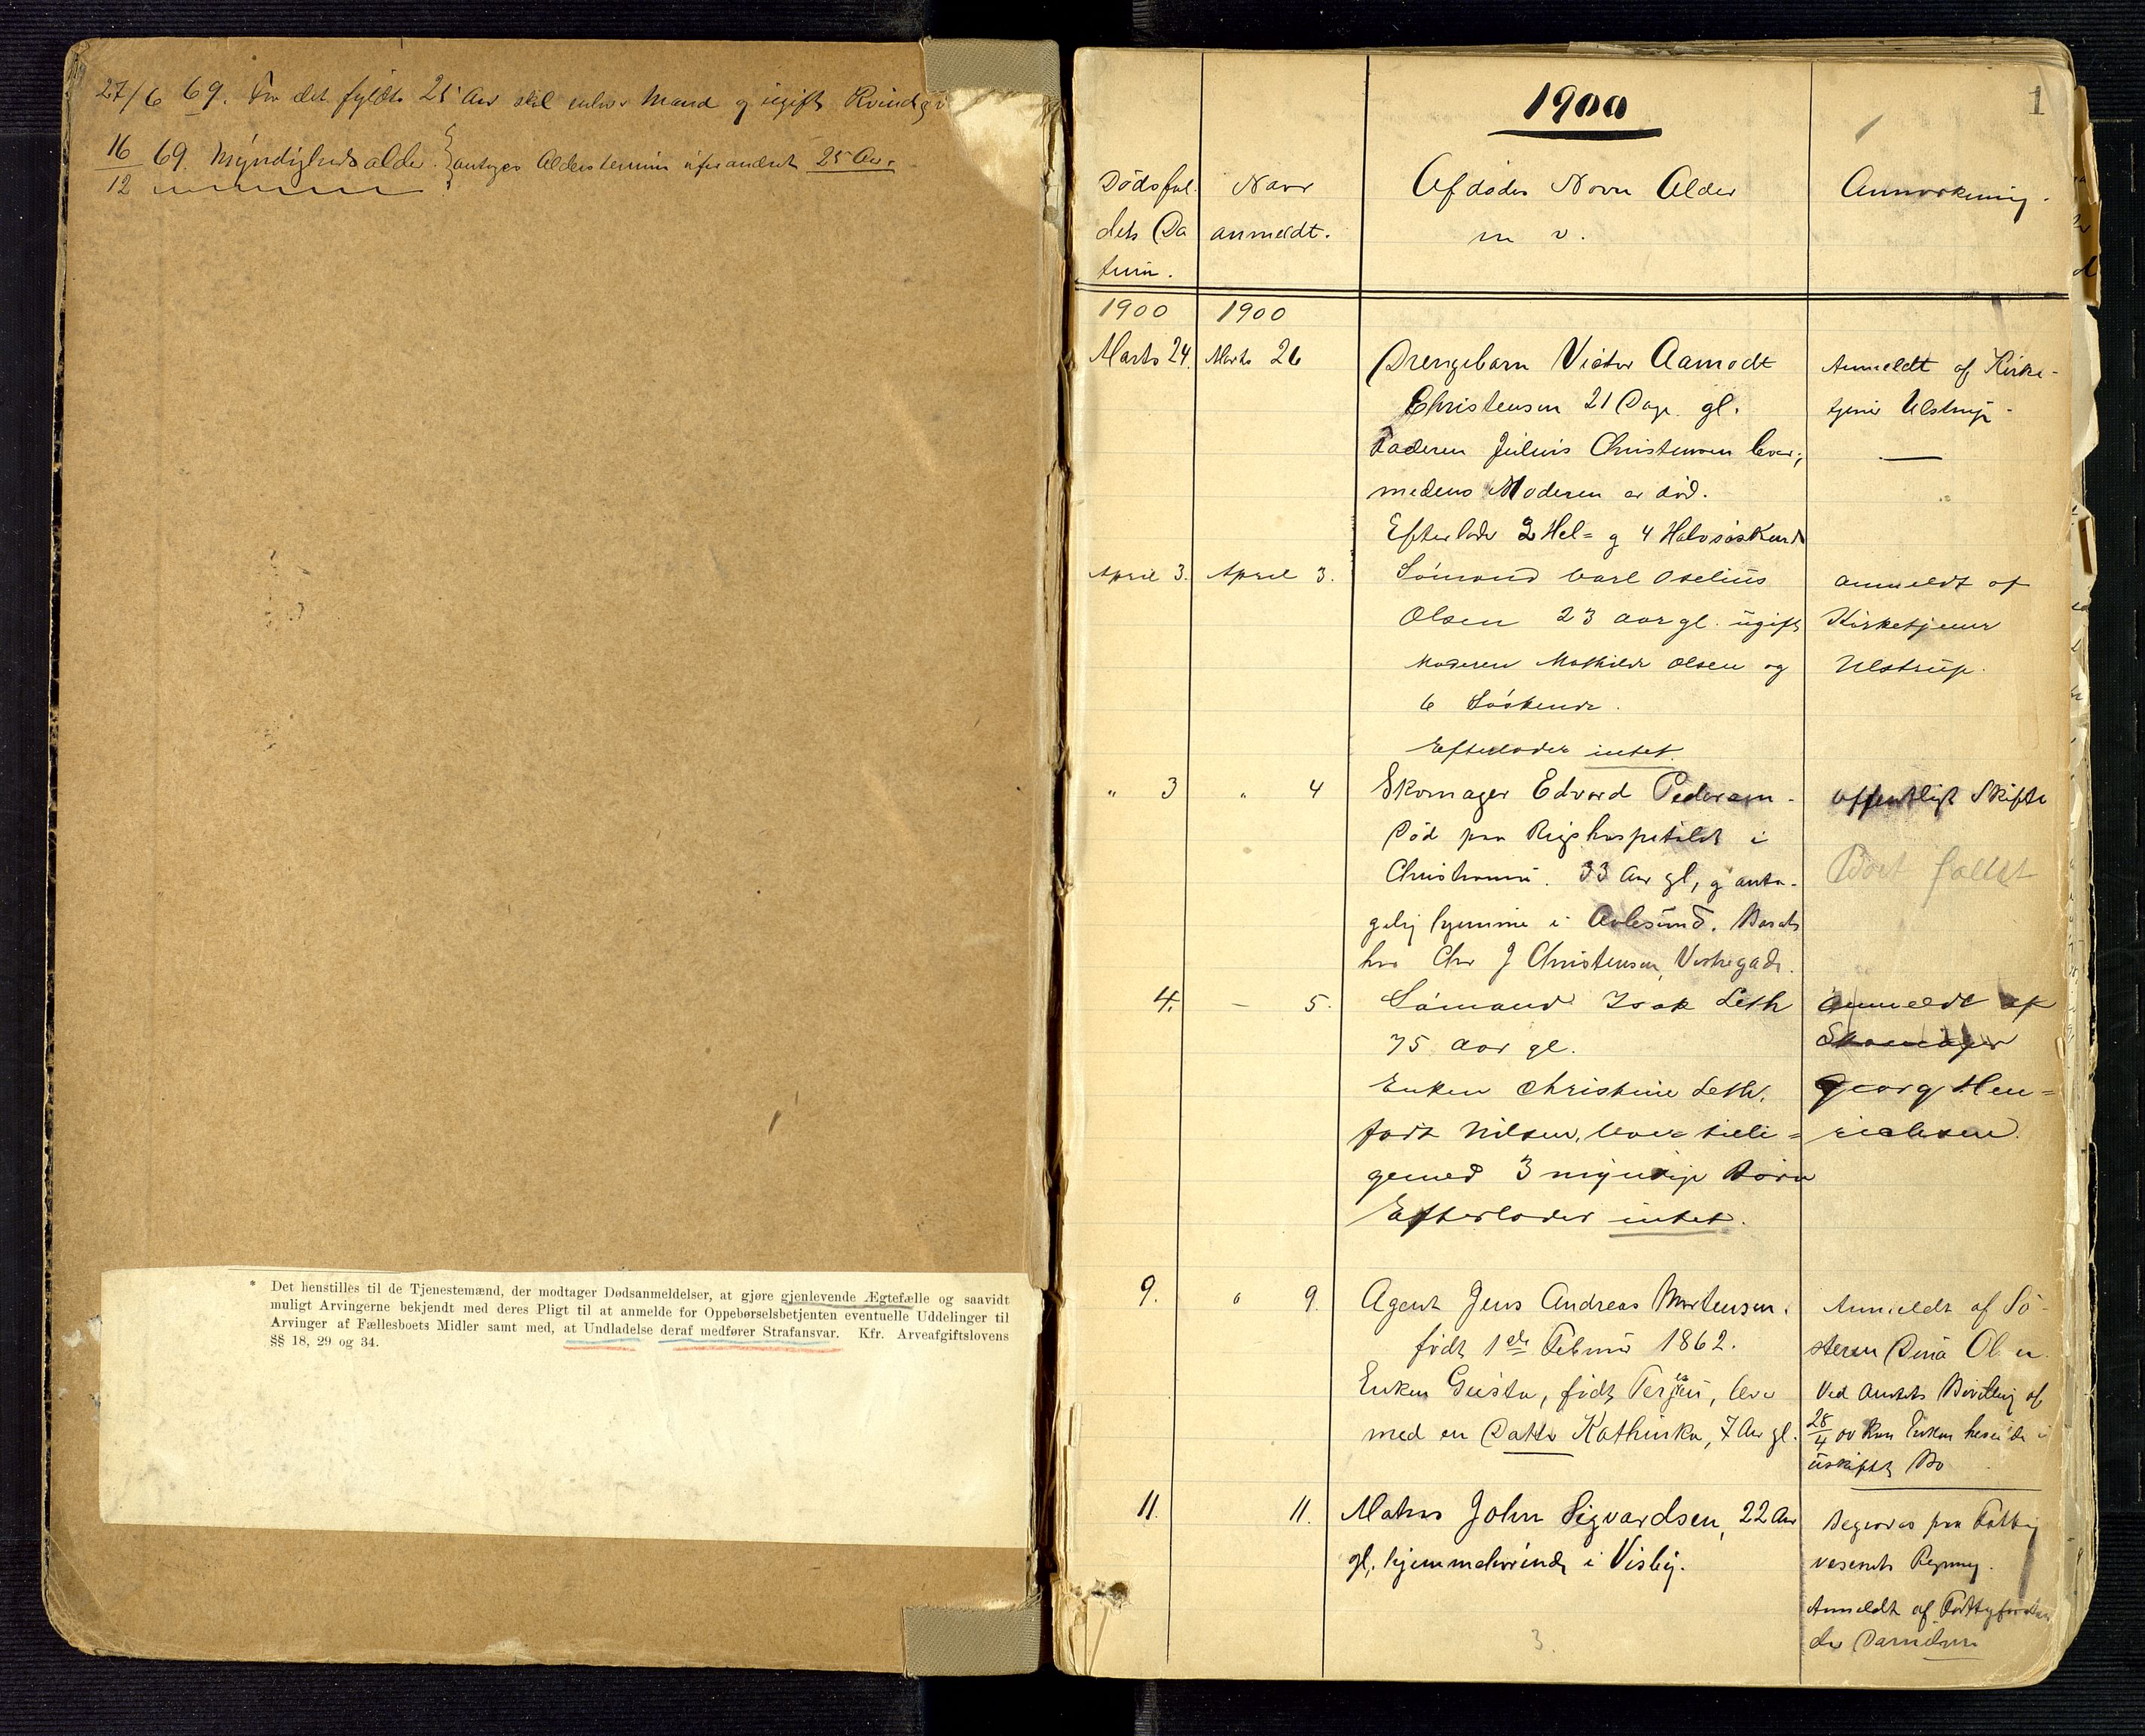 27/6 69. Før det fyldte 25 Aar skal enhver Mand og ugift Kvinde
16/12 69. Myndighedsalder. antages Alderstermin uforandret 25 Aar.
* Det henstilles til de Tjenestemænd, der modtager Dødsanmeldelser, at gjøre gjenlevende Ægtefælle og saavidt
muligt Arvingerne bekjendt med deres Pligt til at anmelde for Oppebørselsbetjenten eventuelle Uddelinger til
Arvinger af Fællesboets Midler samt med, at Undladelse deraf medfører Strafansvar. Kfr. Arveafgiftslovens
§§ 18, 29 og 34.
1
1900
Dødsfal-
dets Da
tum.
Naar
anmeldt.
Afdødes Navn Alder
m v.
Anmærkning.
1900
1900
Marts 24.
Marts 26
Drengebarn Victor Aamodt
Christensen 21 Dage gl.
Faderen Julius Christensen lever,
medens Moderen er død.
Efterlader 2 Hel= og 4 Halvsøskende
Anmeldt af Kirke-
tjener Ulstrup.
April 3.
April 3.
Sømand Carl Oselius
Olsen 23 aar gl. ugift
Moderen Mathilde Olsen og
6 Søskende.
Efterlader intet.
anmeldt af
Kirketjener
Ulstrup.
" 3
" 4
Skomager Edvard Pedersen.
Død paa Rigshospitalet i
Christiania. 33 Aar gl, og anta-
gelig hjemme i Aalesund. Boede
hos Chr J Christensen, Vestregade.
offentligt Skifte
Bort faldet
4.
– 5.
Sømand Isak Leth
75 aar gl.
Enken Christine Leth,
født Nilsen, lever tilli=
gemed 3 myndige Børn
Efterlader intet.
Anmeldt af
Skomager
Georg Hen=
richsen.
9.
" 9.
Agent Jens Andreas Mortensen.
født 1ste Februar 1862.
Enken Gusta, født Terjesen, lever
med en Datter Kathinka, 7 Aar gl.
Anmeldt af Sø-
steren Dina Olsen
Ved Amtets Bevilling af
28/4 00 kan Enken hensidde i
uskiftet Bo
11.
11.
Matros John Sigvardsen, 22 Aar
gl, hjemmehørende i Visby.
Begraves paa Fattig
væsenets Regning.
Anmeldt af Fattigforstan
der Danielsen
3.